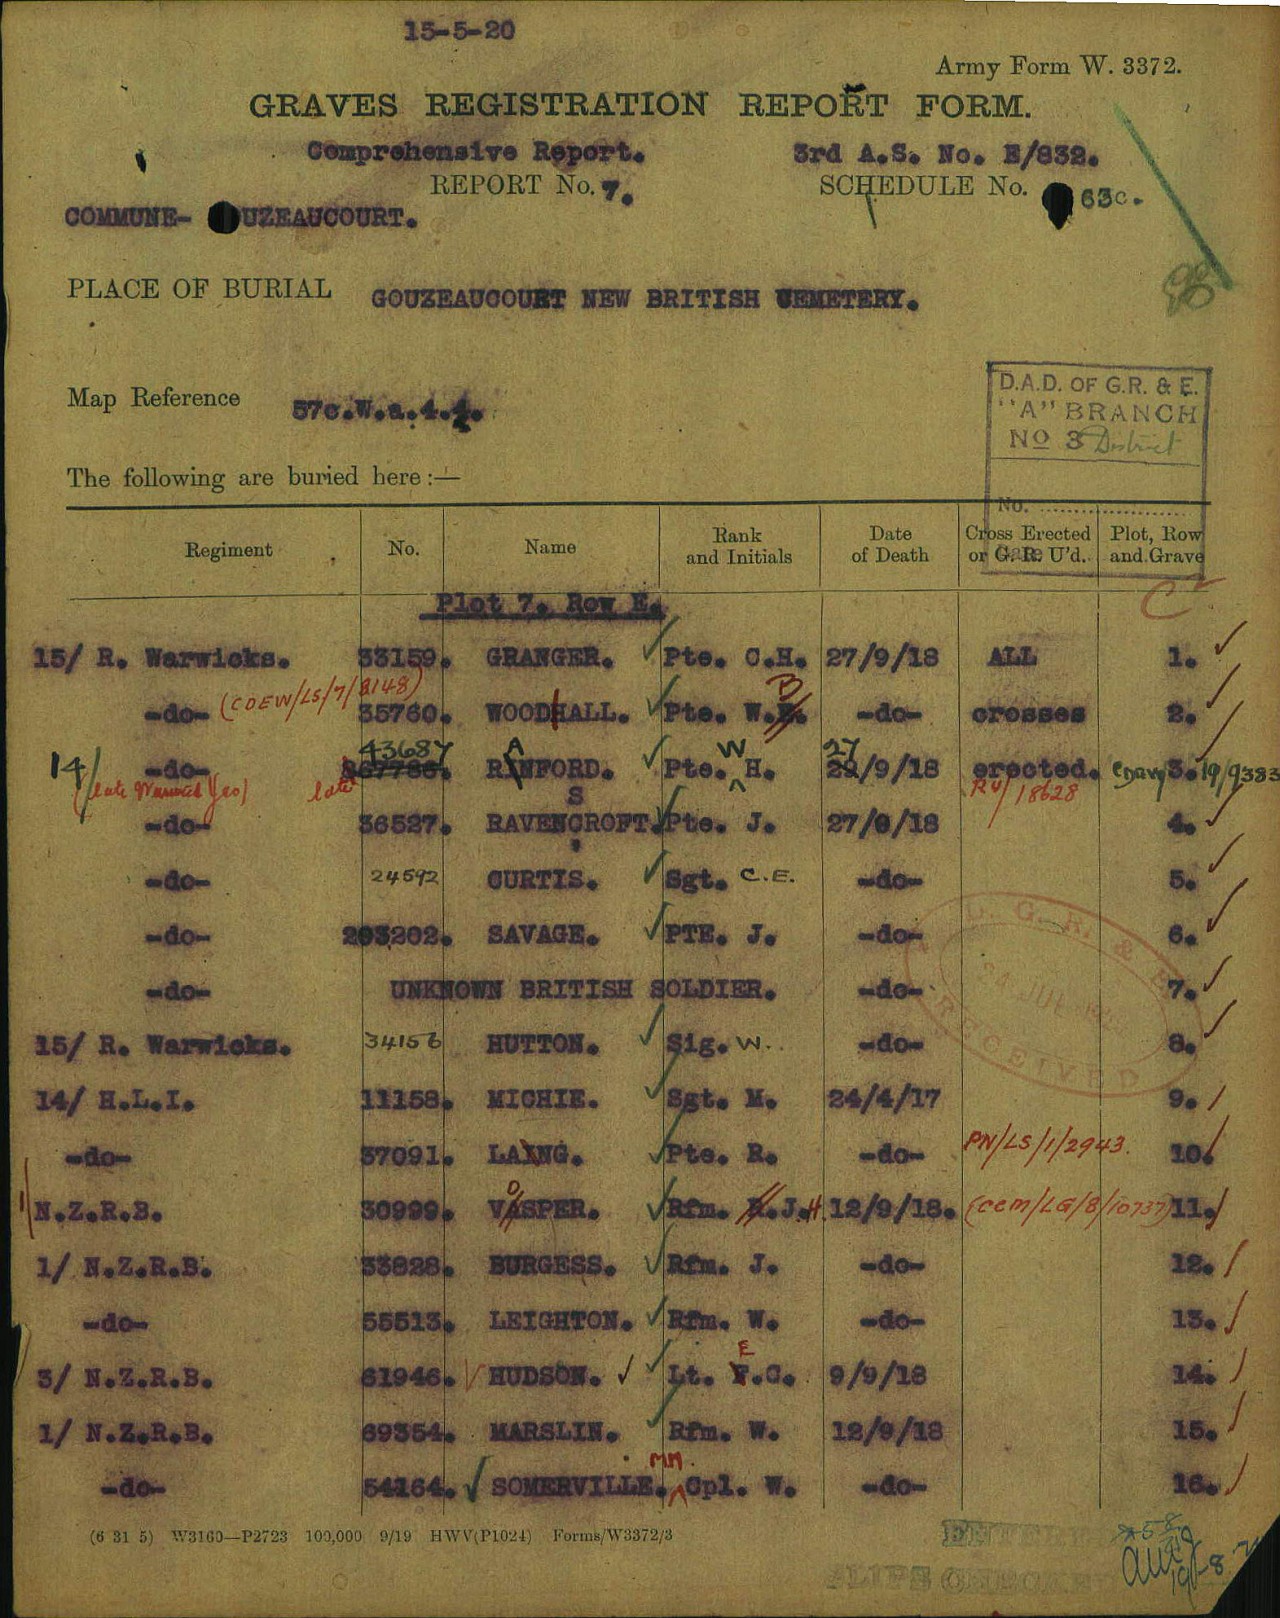 15-5-20
Army Form W. 3372.
GRAVES REGISTRATION REPORT FORM.
Comprehensive Report. 3rd A.S. No. E/832.
REPORT No. 7. SCHEDULE No. 63c.
COMMUNE- OUZEAUCOURT.
98
PLACE OF BURIAL GOUZEAUCOURT NEW BRITISH CEMETERY.
D.A.D. OF G.R. & E.
"A" BRANCH
No 3 District
Map Reference 57c.W.a.4.4.
The following are buried here :—
No. ....................
Regiment No. Name Rank and Initials Date of Death Cross Erected or G. R. U'd. Plot, Row and Grave
Plot 7. Row E. C
15/ R. Warwicks. 33159. GRANGER. Pte. C.H. 27/9/18 ALL 1.
(CDEW/LS/7/8148) B
-do- 35760. WOODHALL. Pte. W. -do- crosses 2.
43687 A W 27
14/ -do- 267786. RINFORD. Pte. H. 22/9/18 erected. 3. 19/9383
(late Warwick Yeo) late S RU/18628
-do- 36527. RAVENCROFT. Pte. J. 27/9/18 4.
-do- 24592 CURTIS. Sgt. C.E. -do- 5.
-do- 203202. SAVAGE. PTE. J. -do- 6.
-do- UNKNOWN BRITISH SOLDIER. -do- 7.
D. G. R. & E. 24 JUL RECEIVED
15/ R. Warwicks. 34156 HUTTON. Sig. W. -do- 8.
14/ H.L.I. 11158. MICHIE. Sgt. M. 24/4/17 9.
-do- 37091. LAING. Pte. R. -do- PN/LS/1/2943. 10.
O
1/ N.Z.R.B. 30999. VASPER. Rfm. R.J.H. 12/9/18. (CCM/LG/8/10737) 11.
1/ N.Z.R.B. 33828. BURGESS. Rfm. J. -do- 12.
-do- 55513. LEIGHTON. Rfm. W. -do- 13.
E
3/ N.Z.R.B. 61946. HUDSON. Lt. F.G. 9/9/18 14.
1/ N.Z.R.B. 69354. MARSLIN. Rfm. W. 12/9/18 15.
MM
-do- 54164. SOMERVILLE. Cpl. W. -do- 16.
(6 31 5) W3160—P2723 100,000 9/19 HWV(P1024) Forms/W3372/3